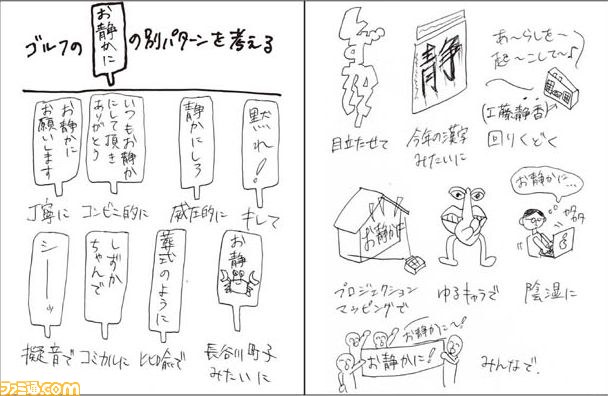 ゴルフの
お静かに
の別パターンを考える
黙れ!
キレて
静かにしろ
威圧的に
いつもお静か
にして頂き
ありがとう
コンビニ的に
お静かに
お願いします
丁寧に
お静
かに
長谷川町子
みたいに
葬式のように
比喩で
しずか
ちゃんで
コミカルに
シーーッ
擬音で
目立たせて
静
今年の漢字
みたいに
あ〜らしを〜
起〜こして〜♪
(工藤静香)の
回りくどく
お静かに
プロジェクション
マッピングで
ゆるキャラで
お静かに…
カタカタ
陰湿に
お静かに〜!
お静かに!
みんなで.
ファミ通.com